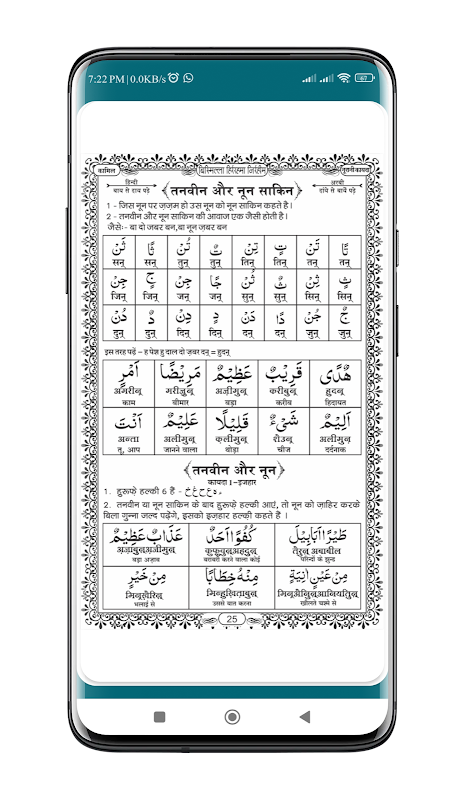 7:22 PM | 0.0KB/s
67
कामिल
बिस्मिल्ला हिर्रहमा निर्रहीम
नूरानी कायदा
हिन्दी
बाय से दाय पढ़े
तनवीन और नून साकिन
अरबी
दांये से बायें पढ़े
1 - जिस नून पर जज़म हो उस नून को नून साकिन कहते है।
2 - तनवीन और नून साकिन की आवाज एक जैसी होती है।
जैसेः- बा दो जबर बन,बा नून जबर बन
ثَنْ ثًا تُنْ تٌ تِنْ تٍ تَنْ تًا
सन् सन् तुन् तुन् तिन् तिन् तन् तन्
جِنْ جٍ جَنْ جًا ثُنْ ثٌ ثِنْ ثٍ
जिन् जिन् जन् जन् सुन् सुन् सिन् सिन्
دُنْ دٌ دِنْ دٍ دَنْ دًا جُنْ جٌ
दुन् दुन् दिन् दिन् दन् दन् जुन् जुन्
इस तरह पढ़ें - ह पेश हु दाल दो ज़बर दन् = हुदन्
اَمْرٍ مَرِيْضًا عَظِيْمٌ قَرِيْبٌ هُدًى
अमरीन् मरीज़न् अज़ीमुन् करीबुन् हुदन्
काम बीमार बड़ा करीब हिदायत
اَنْتَ عَلِيْمٌ قَلِيْلًا شَىْءٌ اَلِيْمٌ
अन्ता अलीमुन् क़लीलन् शैउन् अलीमुन्
तू, आप जानने वाला थोड़ा चीज दर्दनाक
तनवीन और नून
कायदा 1-इजहार
1. हुरूफ़े हल्की 6 हैं - ء ه ع ح غ خ
2. तनवीन या नून साकिन के बाद हुरूफ़े हल्की आएं, तो नून को ज़ाहिर करके
बिला गुन्ना जल्द पढ़ेंगे, इसको इज़हार हल्की कहते हैं ।
عَذَابٌ عَظِيْمٌ كُفُوًا اَحَدٌ طَيْرًا اَبَابِيْلَ
अज़ाबुन्अज़ीमुन् कुफुवन्अहदुन् तैरन् अबाबील
बड़ा अज़ाब बराबरी करने वाला कोई परिन्दों के झुन्ड
مِنْ خَيْرٍ مِنْهُ خِطَابًا مِنْ عَيْنٍ اٰنِيَةٍ
मिन्ख़ैरिन् मिन्हुख़िताबन् मिन्अैनिन्आनियतिन्
भलाई से उससे बात करना खौलते चश्मे से
25